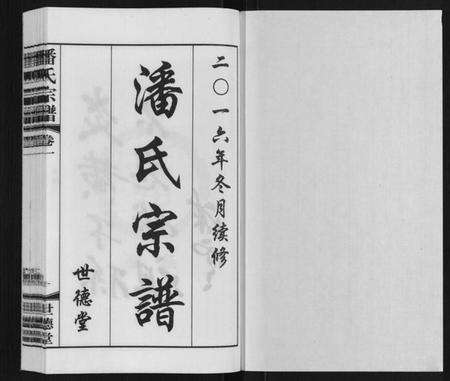 二〇一六年冬月續修
潘氏宗譜
世德堂
潘氏宗譜
卷一
世德堂